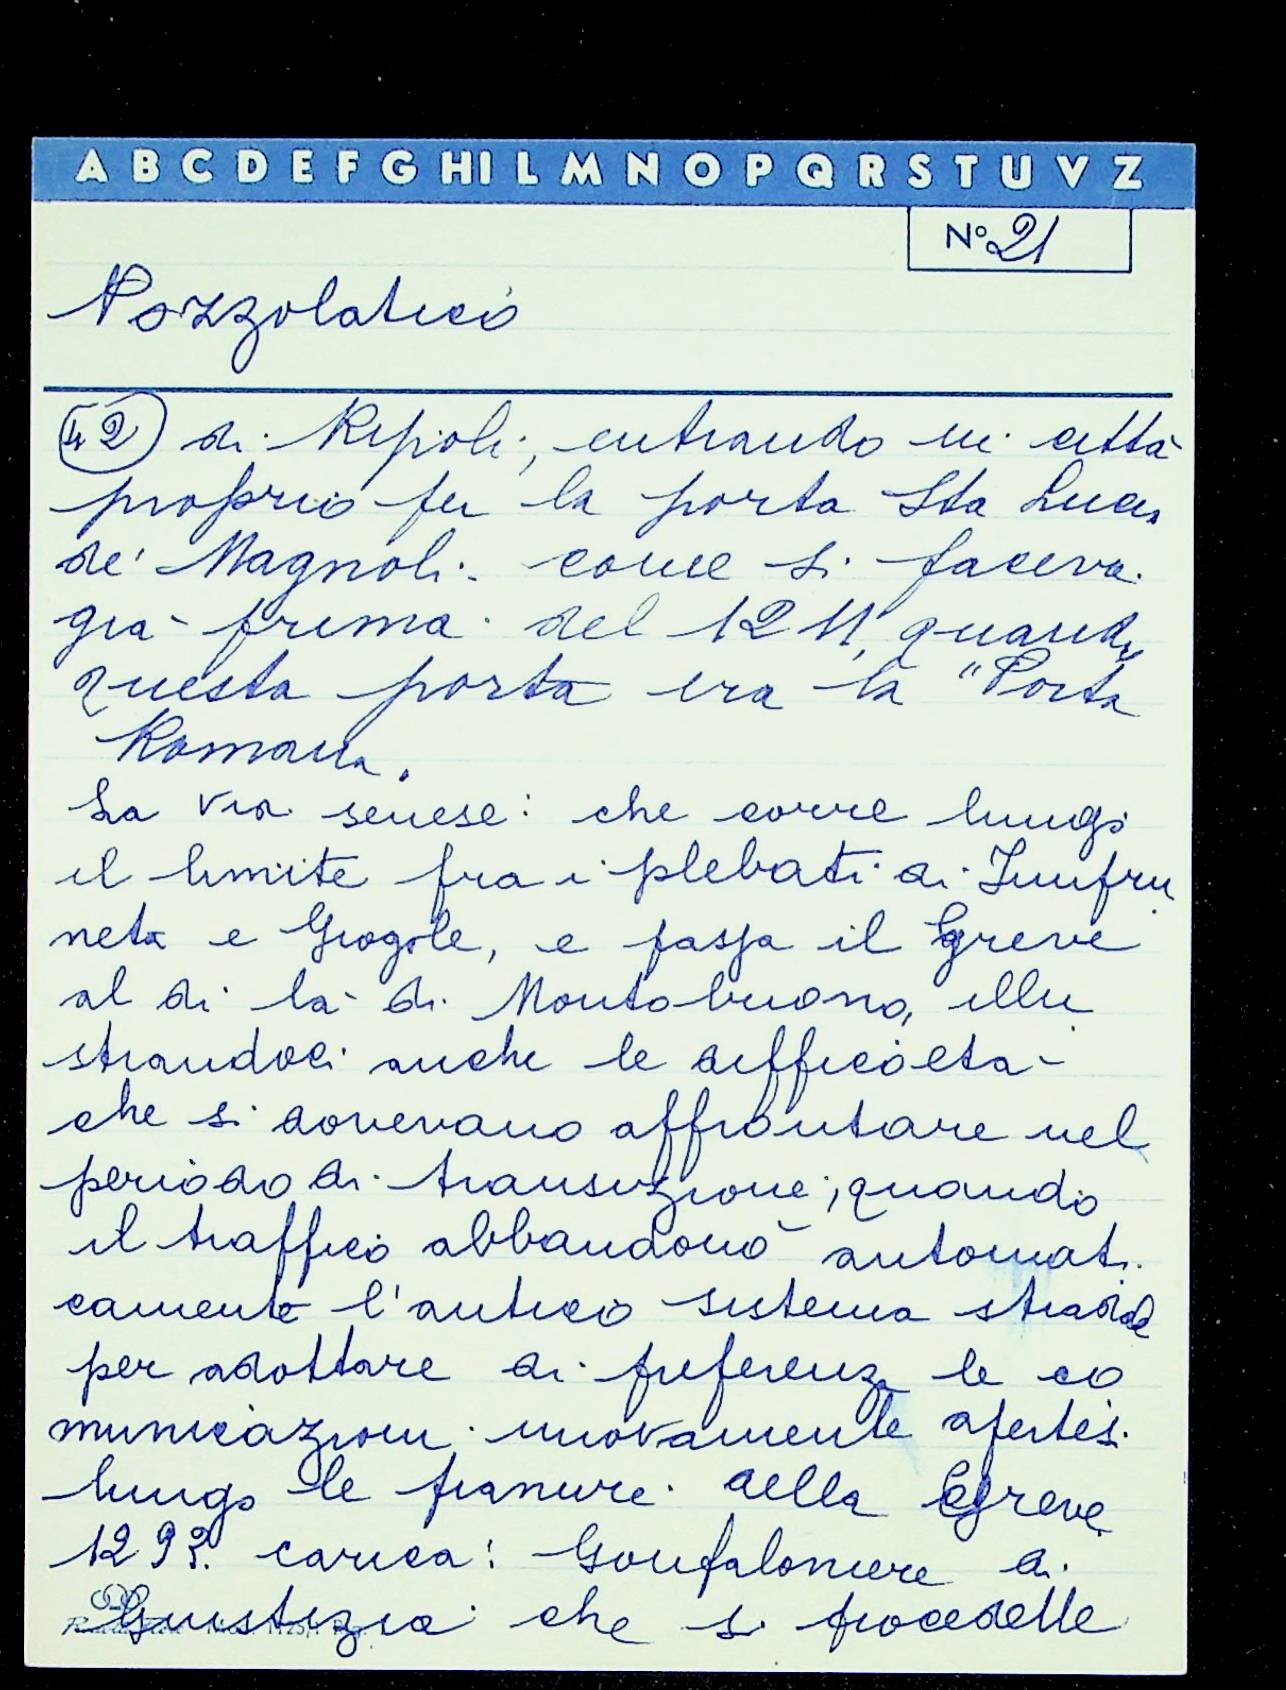 A B C D E F G H I L M N O P Q R S T U V Z
N° 21
Pozzolatico
42 di Ripoli, entrando in città
proprio per la porta Sta Lucia
de' Magnoli. come si faceva
già prima del 1211, quando
questa porta era la "Porta
Romana.
La via senese: che corre lungo
il limite fra i plebati di Imfru
neta e Giogole, e passa il Greve
al di là di Montebuono, illu
strandoci anche le difficoltà
che si dovevano affrontare nel
periodo di transizione, quando
il traffico abbandonò automati
camente l'antico sistema stradale
per adottare di preferenza le co
municazioni nuovamente apertesi
lungo le pianure della Greve
129?. carica: Gonfaloniere di
Giustizia che si procedette